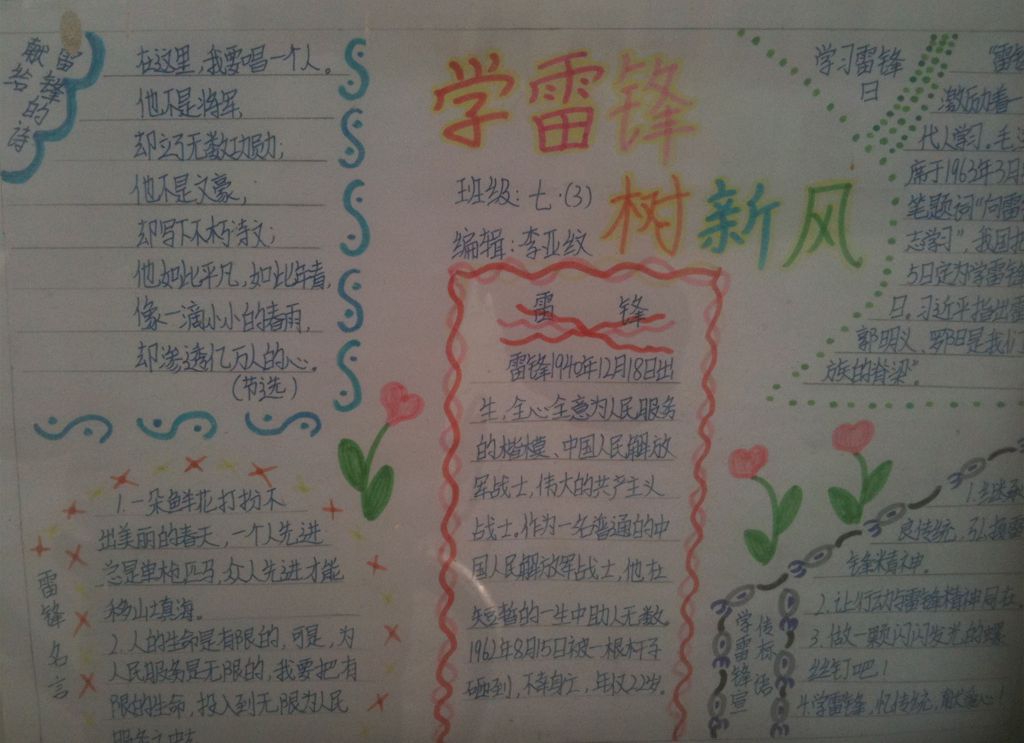 学雷锋
树新风
班级：七·(3)
编辑：李亚纹
献给雷锋的诗
在这里，我要唱一个人。
他不是将军，
却立了无数功勋；
他不是文豪，
却写下不朽诗文；
他如此平凡，如此年青，
像一滴小小的春雨，
却渗透亿万人的心。
(节选)
雷锋
雷锋1940年12月18日出
生，全心全意为人民服务
的楷模、中国人民解放
军战士，伟大的共产主义
战士。作为一名普通的中
国人民解放军战士，他在
短暂的一生中助人无数
1962年8月15日被一根木杆子
砸到，不幸身亡，年仅22岁。
学习雷锋
日
"雷锋
激励着一
代人学习。毛
席于1963年3月
笔题词"向雷
志学习"，我国把
5日定为学雷锋
日。习近平指出雷
郭明义、罗阳是我们
族的脊梁"。
雷锋名言
1.一朵鲜花打扮不
出美丽的春天，一个人先进
总是单枪匹马，众人先进才能
移山填海。
2.人的生命是有限的，可是，为
人民服务是无限的，我要把有
限的生命，投入到无限为人民
服务之中去
学雷锋宣
传标语
1.继承
良传统，弘扬雷
锋精神。
2.让行动与雷锋精神同在。
3.做一颗闪闪发光的螺
丝钉吧！
4.学雷锋，忆传统，献爱心！